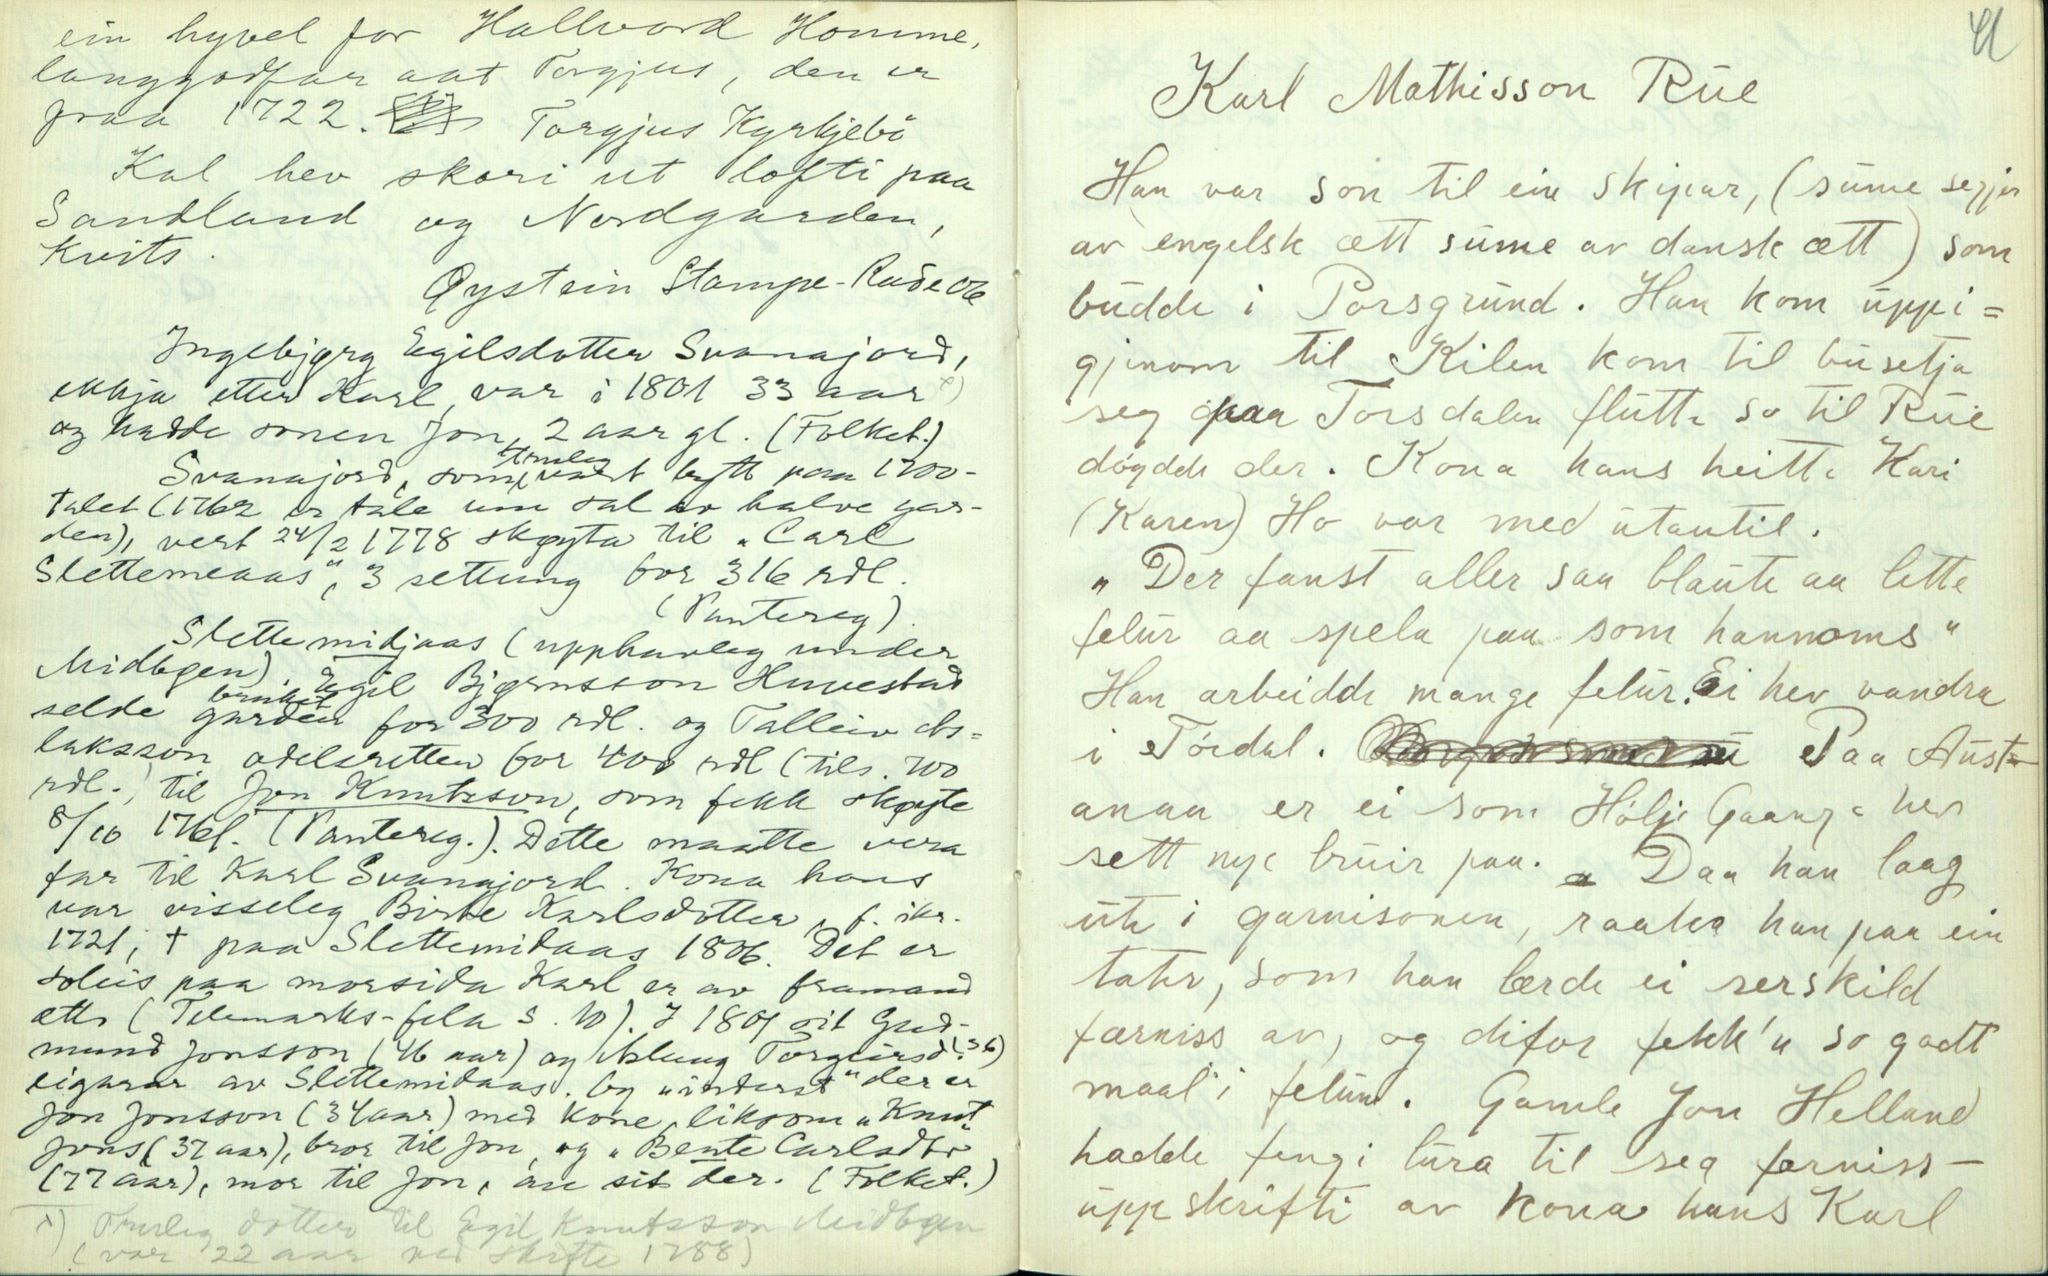 ein hyvel for Hallvord Homme,
langgodfar aat Torgjus, den er
fraa 1722. Torgjus Kyrkjebö
Kal hev skori ut lofti paa
Sandland og Nordgarden,
Kvits.
Øystein Stampe-Rue
Ingebjørg Egilsdotter Svanajord,
ekkja etter Karl, var i 1801 33 aar x)
og hadde sonen Jon, 2 aar gl. (Folket.)
Svanajord, som truleg vart bygt paa 1700-
talet (1762 er tale um sal av halve gar-
den), vert 24/2 1778 skøyta til „Carl
Slettemeaas", 3 settung for 316 rdl.
(Pantereg).
Slettemidjaas (upphavleg under
Midbøen). Egil Bjørnsson Huvestad
selde garden for 300 rdl. og Talleiv As-
laksson odelsretten for 400 rdl (tils. 700
rdl.) til Jon Knutsson, som fekk skøyte
8/10 1761. (Pantereg.). Dette maatte vera
far til Karl Svanajord. Kona hans
var visseleg Birte Karlsdotter, f. ikr.
1721, † paa Slettemidaas 1806. Det er
soleis paa morsida Karl er av framand
ætt (Telemarks-fela s. 10). I 1801 sit Gud-
mund Jonsson (46 aar) og Aslaug Torgeirsd. (36)
eigarar av Slettemidaas. Og „inderst" der er
Jon Jonsson (34 aar) med kone, liksom „Knut
Jons (37 aar), bror til Jon, og „Bente Carlsdtr
(77 aar), mor til Jon, au sit der. (Folket.)
x) Truleg dotter til Egil Knutsson Midbøen
(var 22 aar ved skifte 1788)
41
Karl Mathisson Rue
Han var son til ein skipar, (sume segjer
av engelsk ætt sume av dansk ætt) som
budde i Porsgrund. Han kom uppi=
gjenom til Kilen kom til busetja
seg paa Torsdalen flutte so til Rue
döydde der. Kona hans heitte Kari
(Karen) Ho var med utantil.
„Der fanst aller saa blaute aa lette
felur aa spela paa som hannoms"
Han arbeidde mange felur. Ei hev vandra
i Tördal. Paa Aust-
anaa er ei som Hölje Gaarg. hev
sett nye bruir paa. Daa han laag
ute i garnisonen, raaka han paa ein
tatar, som han lærde ei serskild
færniss av, og difor fekk'n so godt
maal i felun. Gamle Jon Helland
hadde fengi lura til seg færniss-
uppskrifti av kona hans Karl